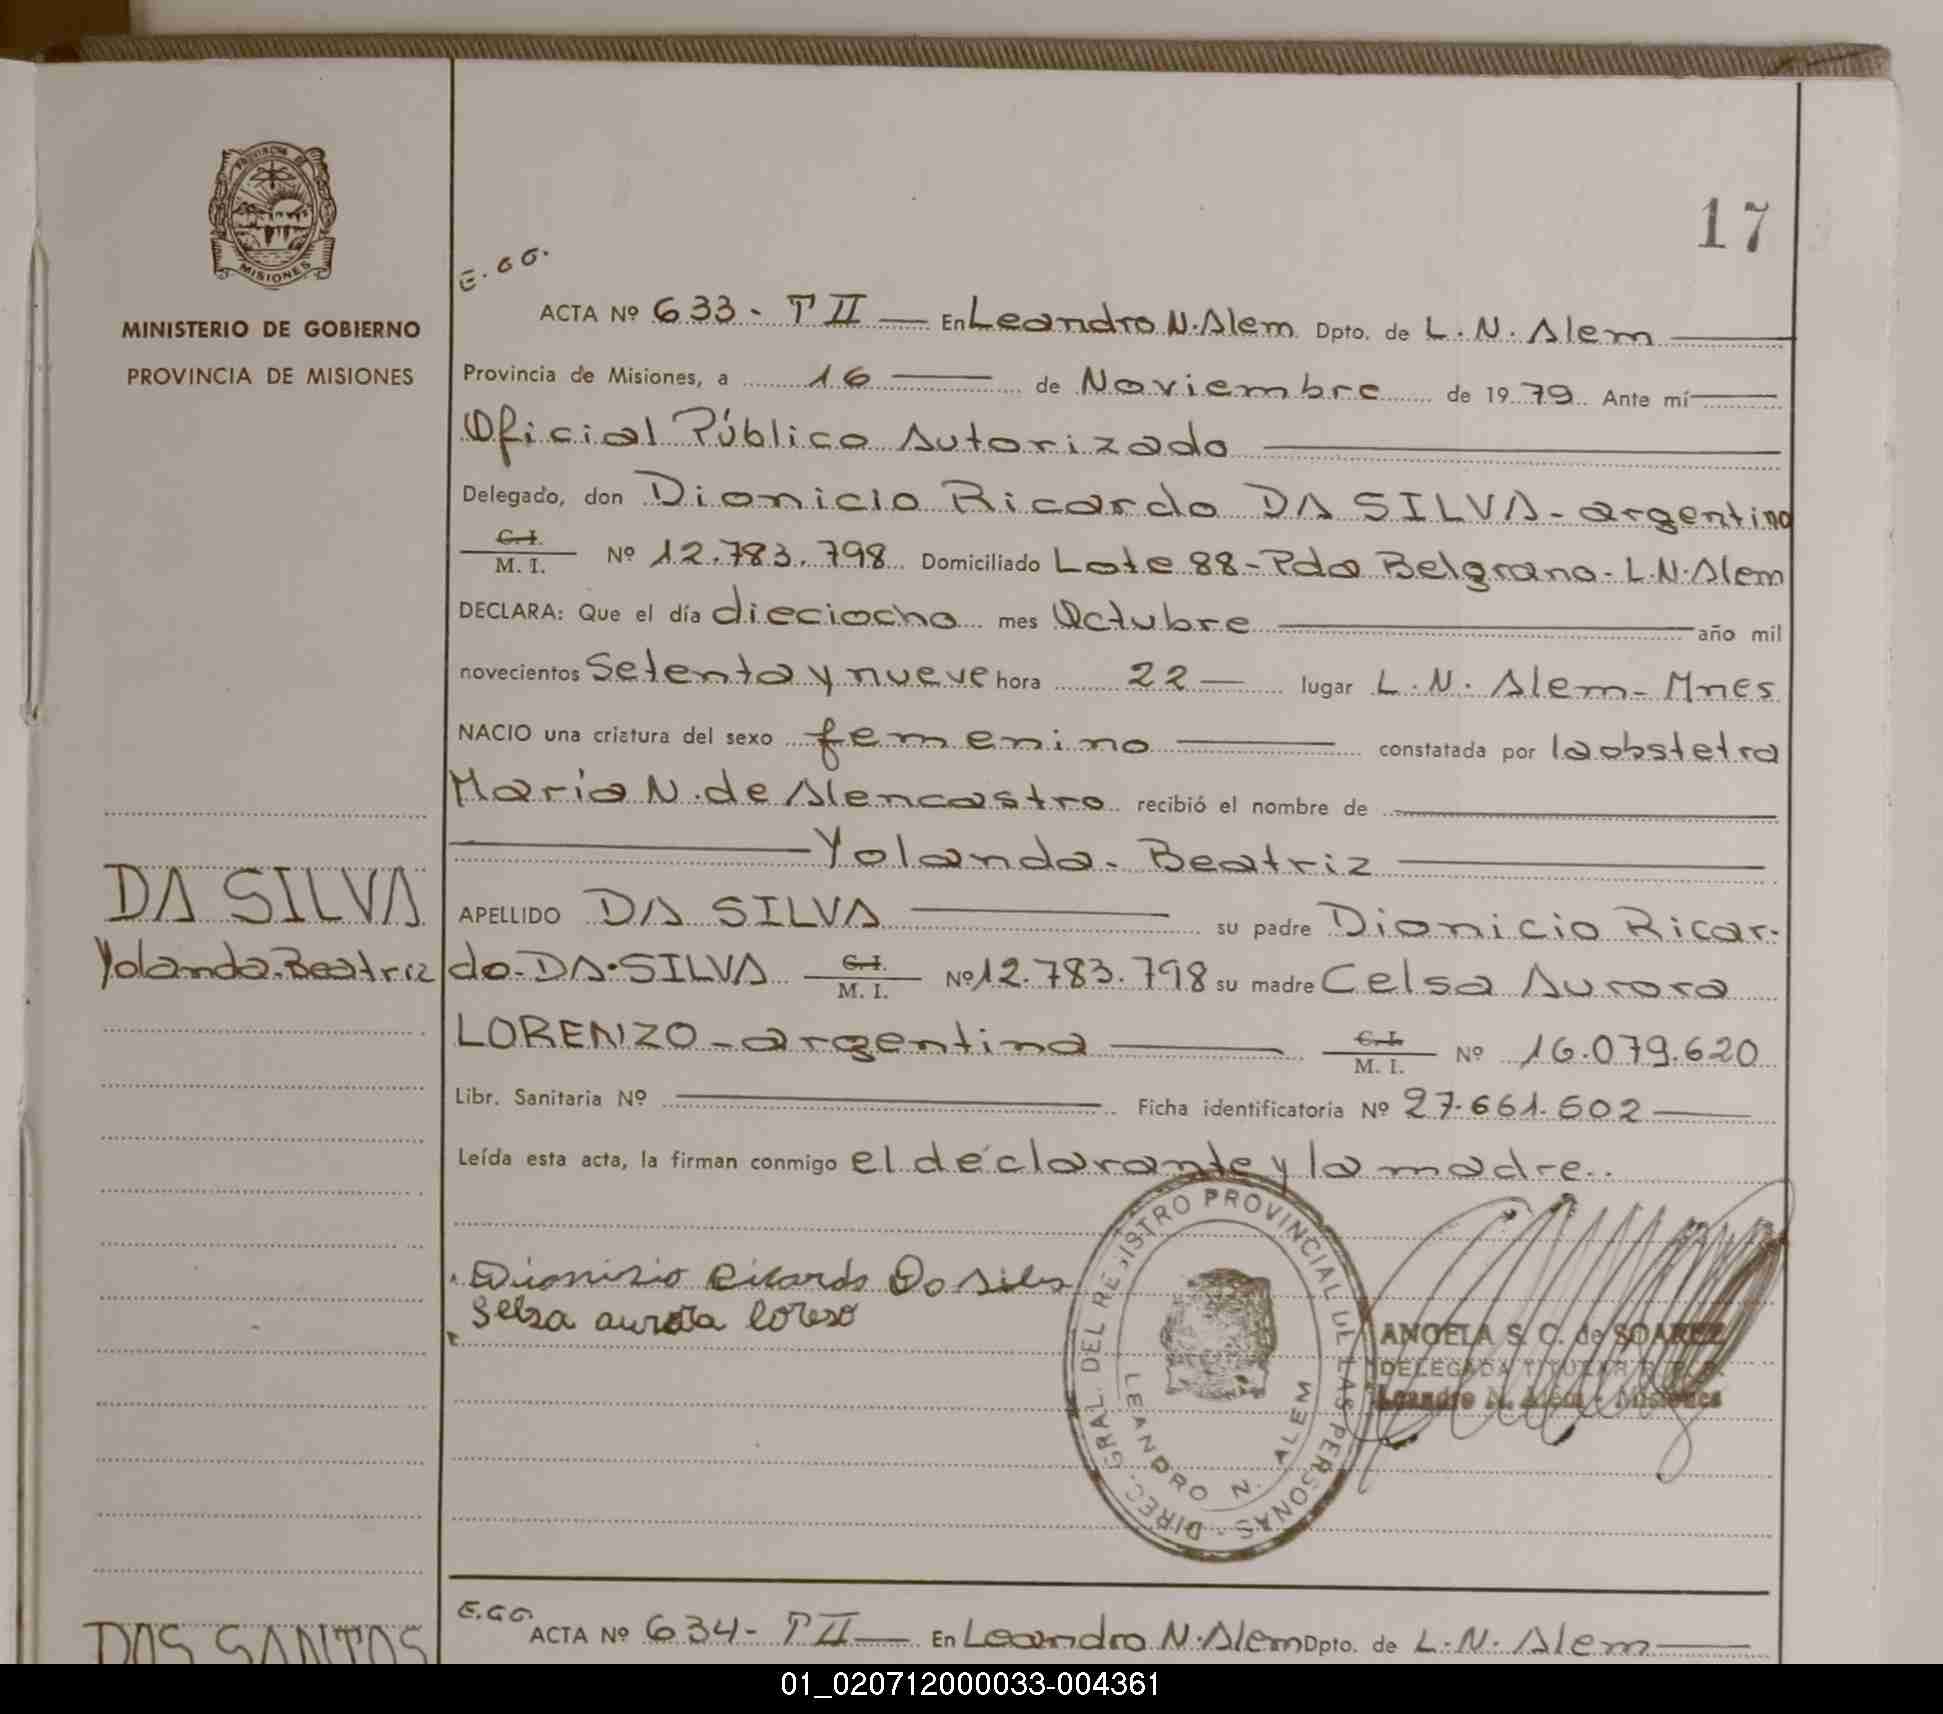 PROVINCIA DE
MISIONES
MINISTERIO DE GOBIERNO
PROVINCIA DE MISIONES
17
E.GG.
ACTA Nº 633 - T II — En Leandro N. Alem Dpto. de L. N. Alem
Provincia de Misiones, a 16 — de Noviembre de 1979. Ante mí
Oficial Público Autorizado
Delegado, don Dionicio Ricardo DA SILVA - argentino
C.I. / M. I. Nº 12.783.798 Domiciliado Lote 88 - Pda Belgrano - L.N. Alem
DECLARA: Que el día dieciocho mes Octubre año mil
novecientos Setenta y nueve hora 22 — lugar L. N. Alem - Mnes
NACIO una criatura del sexo femenino — constatada por la obstetra
Maria N. de Alencastro recibió el nombre de
Yolanda - Beatriz
DA SILVA
Yolanda-Beatriz
APELLIDO DA SILVA — su padre Dionicio Ricar-
do-DA-SILVA C.I. / M. I. Nº 12.783.798 su madre Celsa Aurora
LORENZO - argentina — C.I. / M. I. Nº 16.079.620
Libr. Sanitaria Nº — Ficha identificatoria Nº 27.661.602 —
Leída esta acta, la firman conmigo el declarante y la madre..
Dionisio Ricardo Da Silva
Selsa aurora loreso
DIREC. GRAL. DEL REGISTRO PROVINCIAL DE LAS PERSONAS
LEANDRO N. ALEM
ANGELA S. C. de SOAREZ
DELEGADA TITULAR R. P. P.
Leandro N. Alem - Misiones
E.GG.
ACTA Nº 634 - T II — En Leandro N. Alem Dpto. de L. N. Alem —
DOS SANTOS
01_020712000033-004361